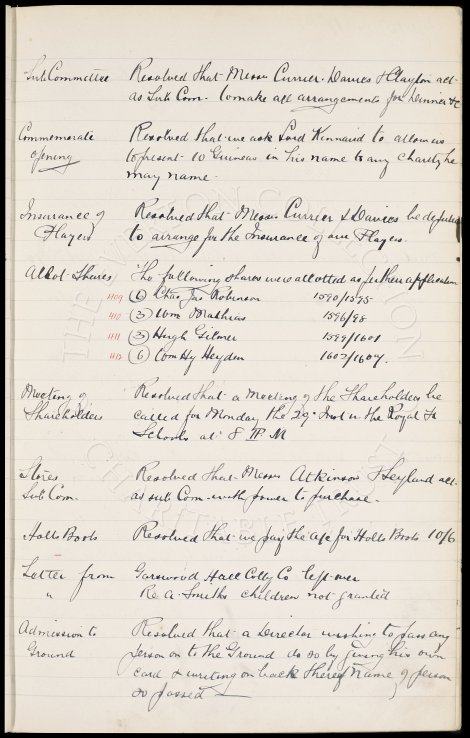 Sub Committee Resolved that Messrs Currier, Davies & Clayton act
as Sub Com. to make all arrangements for Dinner &c
Commemorate Resolved that we ask Lord Kinnaird to allow us
opening to present 10 Guineas in his name to any charity he
may name.
Insurance of Resolved that Messrs Currier & Davies be deputed
Players to arrange for the Insurance of our Players.
Allot Shares The following shares were allotted as per their application
1109 (6) Chas Jas Robinson 1590/1595
1110 (3) Wm Mathias 1596/98
1111 (3) Hugh Gilmer 1599/1601
1112 (6) Wm Hy Heyden 1602/1607.
Meeting of Resolved that a meeting of the Shareholders be
Shareholders called for Monday the 29 Inst in the Royal
Schools at 8 P.M
Stores Resolved that Messrs Atkinson & Leyland act
Sub Com. as sub Com. with power to purchase.
Holts Boots Resolved that we pay the a/c for Holts Boots 10/6
Letter from Garswood Hall Colly Co left over
" Re A. Smiths children not granted
Admission to Resolved that a Director wishing to pass any
Ground person on to the Ground do so by giving his own
card & writing on back thereof name of person
so passed
THE
COLLECTION
CHARITABLE